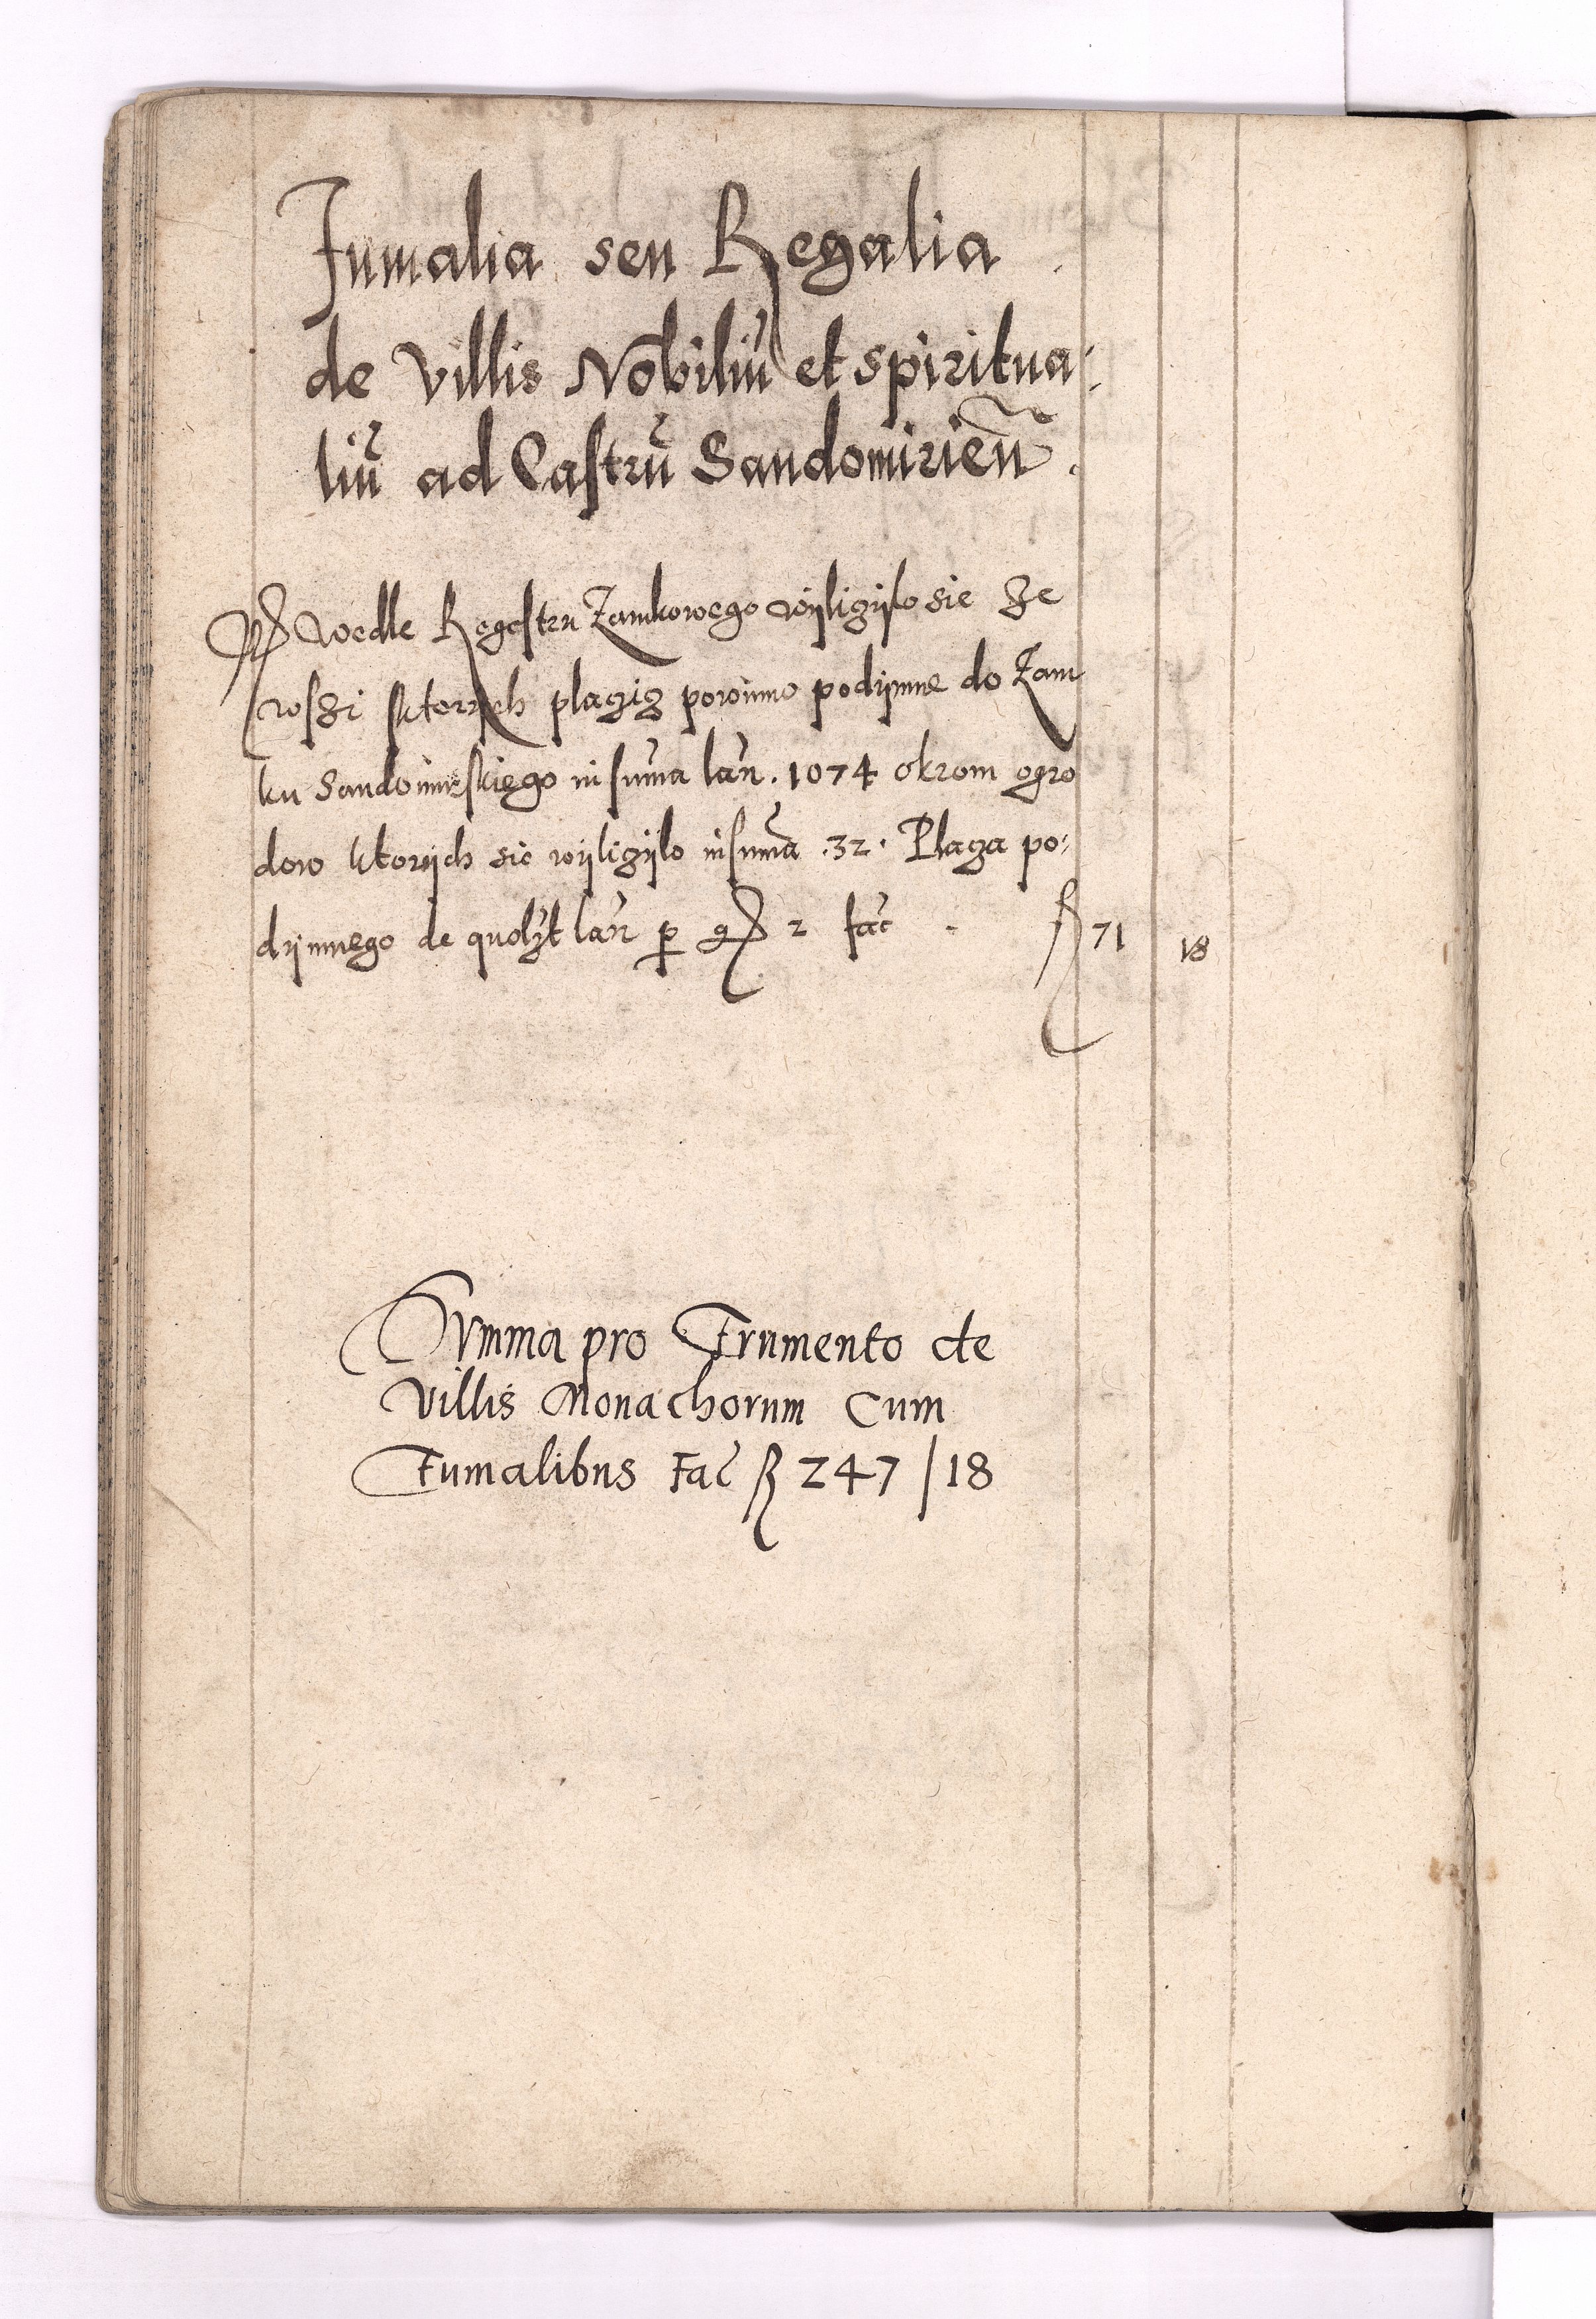 Fumalia seu Regalia
de Villis Nobiliū et spiritua:
liū ad Castrū Sandomirien̄.
wedle Regestru Zamkowego wÿlicżÿlo sie Ze
wsżi sktorÿch placżicz powinno podÿmne do Zam
ku Sandomirskiego in sum̄a lan̄. 1074 okrom ogro
dow ktorÿch sie wÿlicżÿlo in sum̄a .32. Placza po:
dÿmnego de quolz̄t lan̄ p̱ gͬ 2 fac̄ - fl 71 18
Summa pro Frumento de
Villis Monachorum Cum
Fumalibus Fac̄ fl 247 / 18